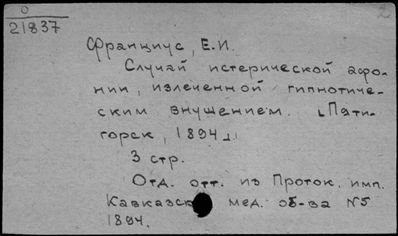 0
21837
Франциус, Е.И.
Случай истерической афо-
нии, излеченной гипнотиче-
ским внушением. [Пяти-
горск, 1894].
3 стр.
Отд. отт. из Проток. имп.
Кавказск мед. об-ва N5
1894.